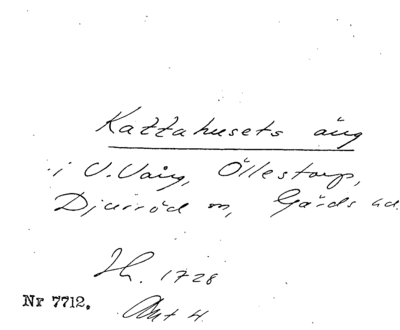 Kattahusets äng
i V. Vång, Öllestorp,
Djurröd sn, Gärds hd.
Jh. 1728
Nr 7712.
Akt 4.